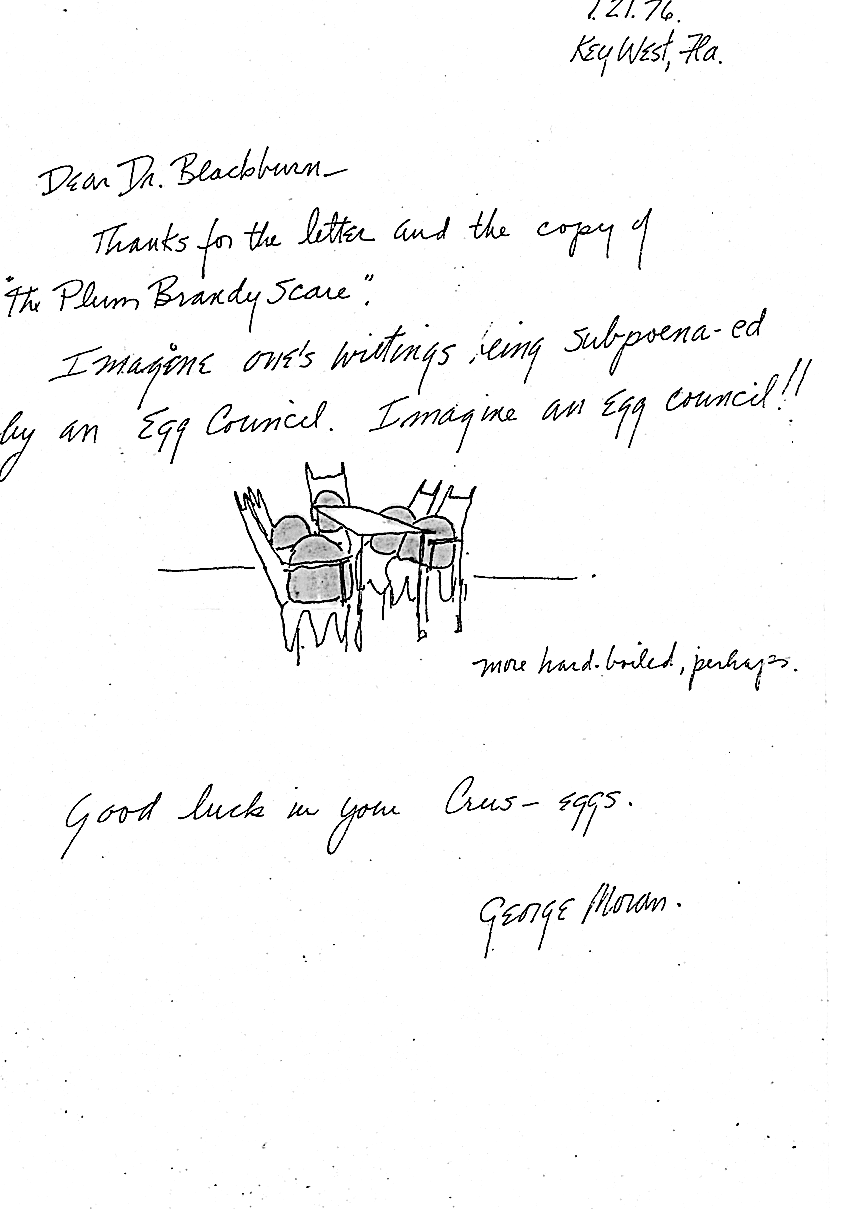 1.21.76.
Key West, Fla.
Dear Dr. Blackburn—
Thanks for the letter and the copy of
"The Plum Brandy Scare".
Imagine one's writings being subpoena-ed
by an Egg Council. Imagine an Egg council!!
more hard-boiled, perhaps.
Good luck in your Crus-eggs.
George Moran.